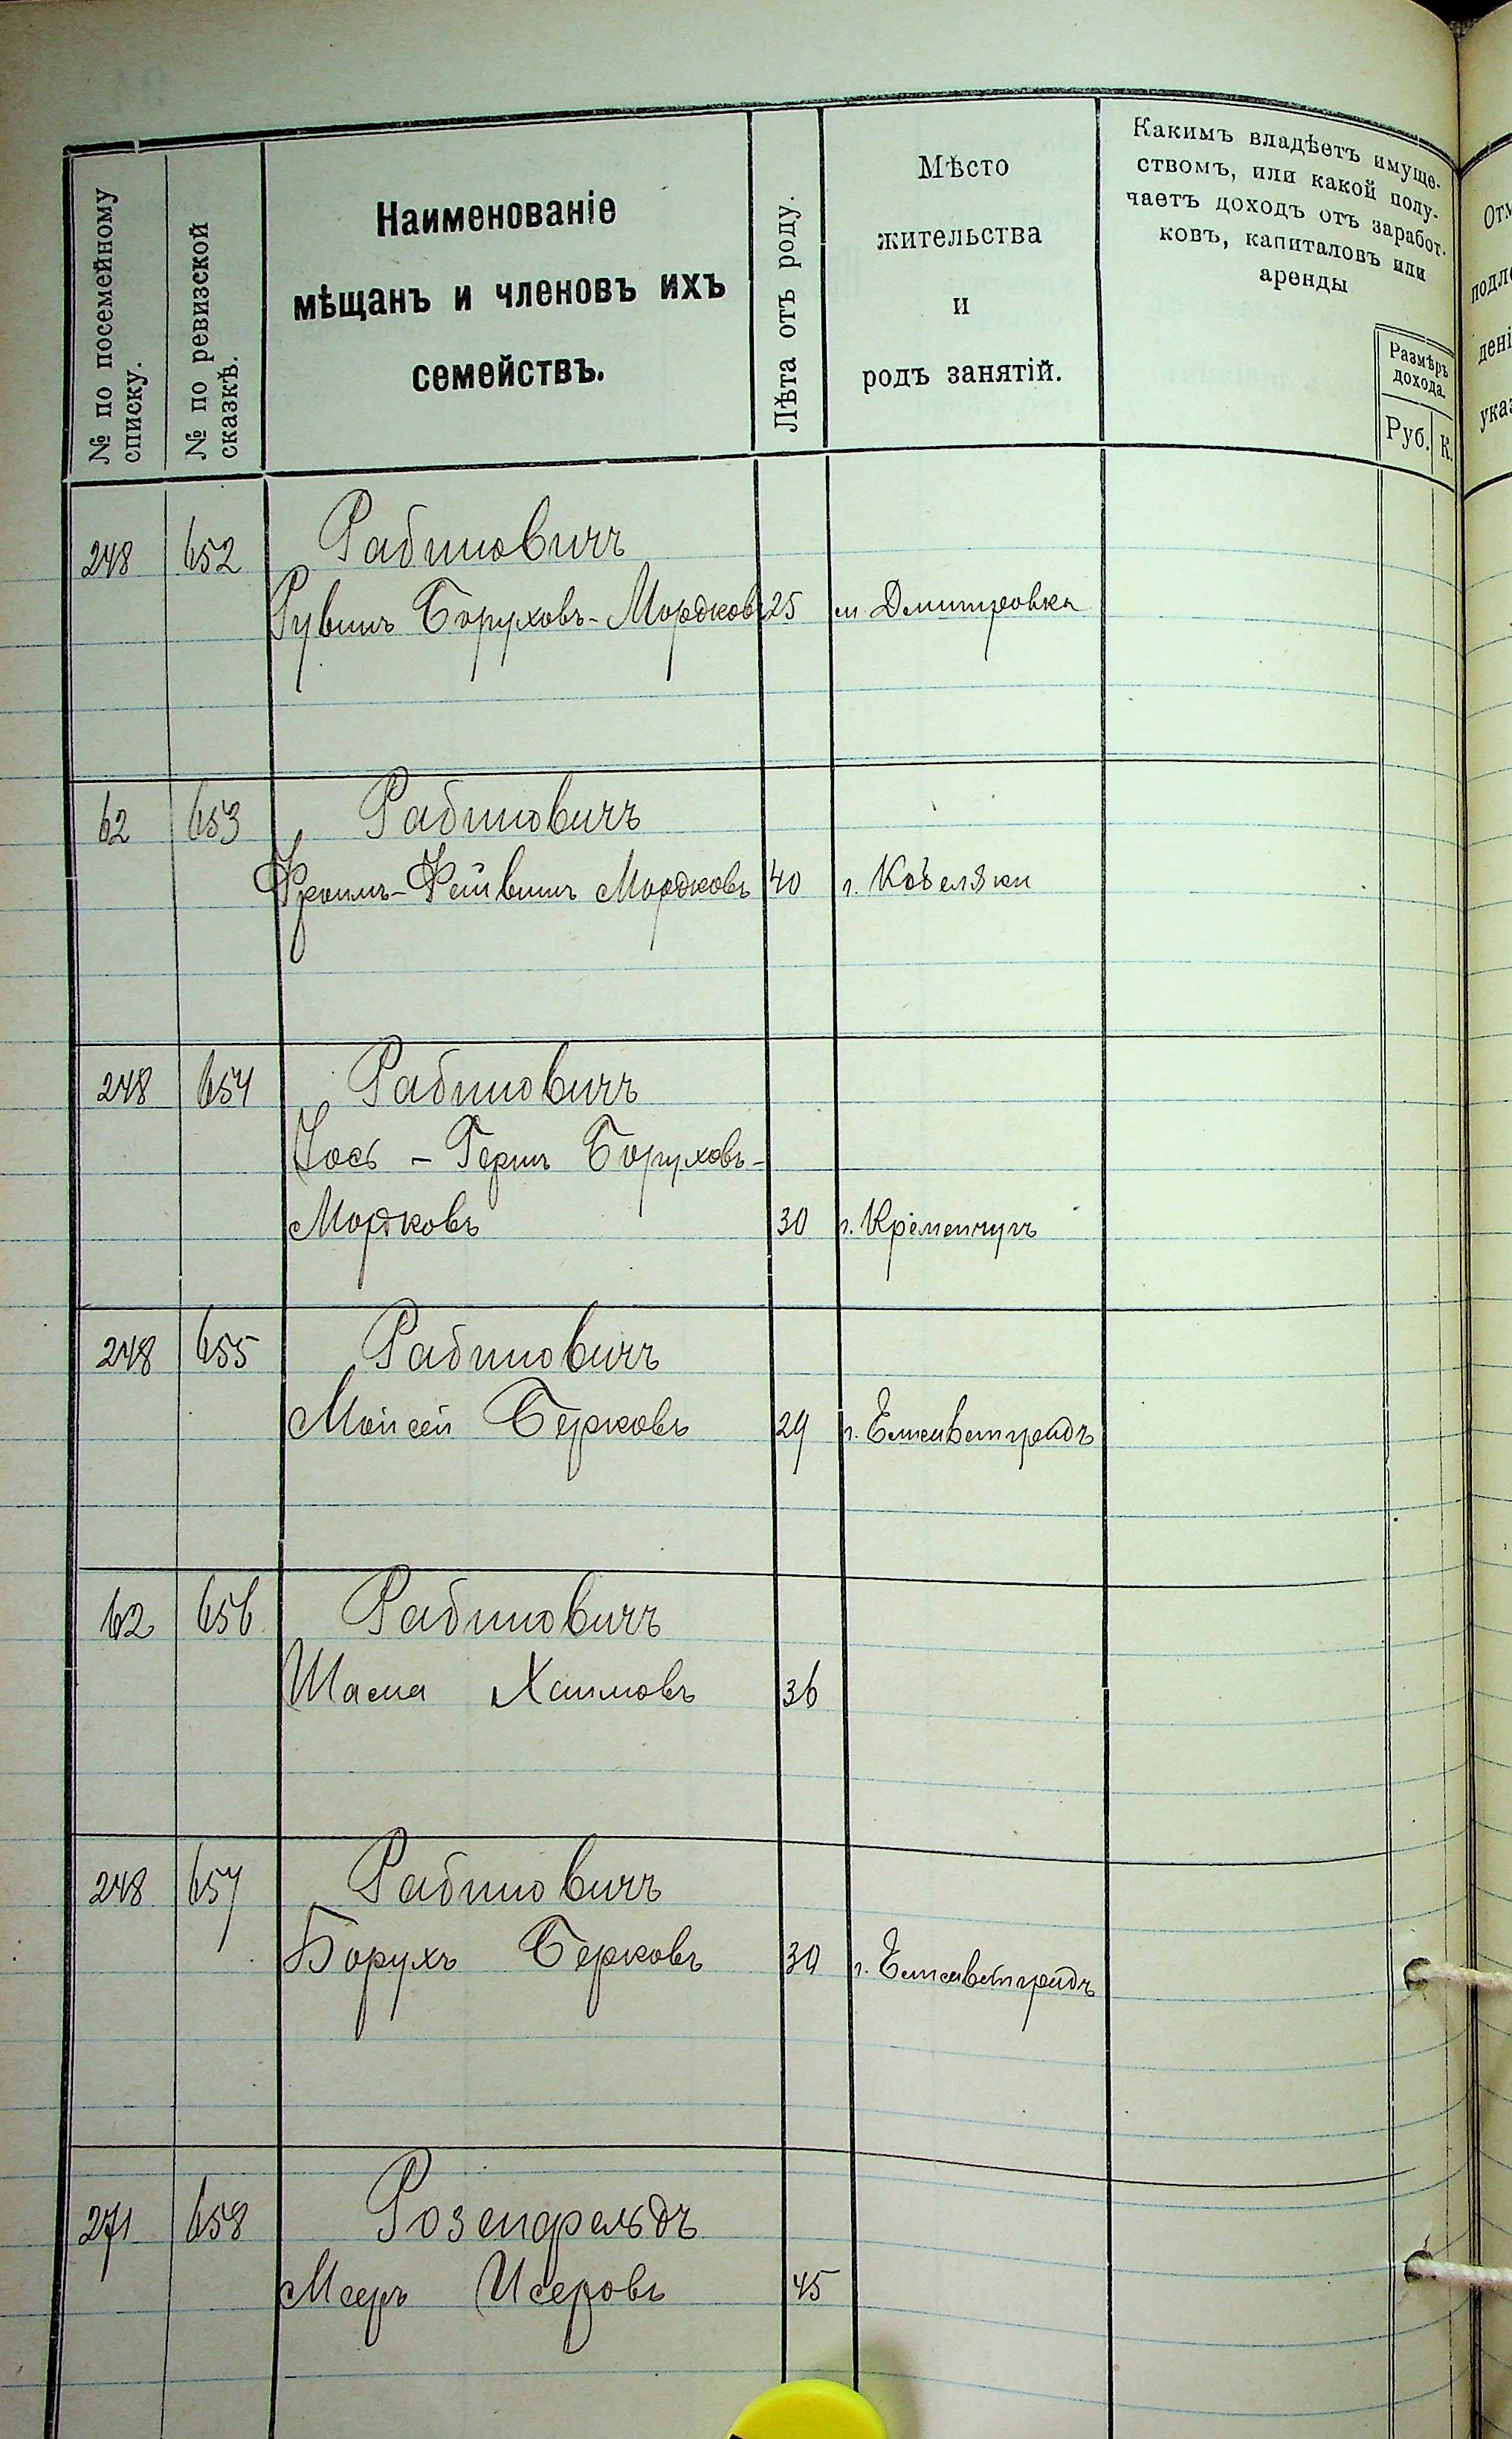 № по посемейному
списку.
№ по ревизской
сказкѣ.
Наименованіе
мѣщанъ и членовъ ихъ
семействъ.
Лѣта отъ роду.
Мѣсто
жительства
и
родъ занятій.
Какимъ владѣетъ имуще-
ствомъ, или какой полу-
чаетъ доходъ отъ заработ-
ковъ, капиталовъ или
аренды
Размѣръ
дохода.
Руб. К.
248 652 Рабиновичъ
Рувинъ Боруховъ-Мордков 25 м Дмитровка
62 653 Рабиновичъ
Фроимъ-Фейвишъ Мордковъ 40 г. Кобеляки
248 654 Рабиновичъ
Іось - Герш Боруховъ-
Мордковъ 30 г. Кременчугъ
248 655 Рабиновичъ
Мойсей Берковъ 29 г. Елисаветградъ
62 656 Рабиновичъ
Шасиа Хаимовъ 36
248 657 Рабиновичъ
Борухъ Берковъ 30 г. Елисаветградъ
271 658 Розенфельдъ
Меер Исеровъ 45
Отм
подле
дені
указ